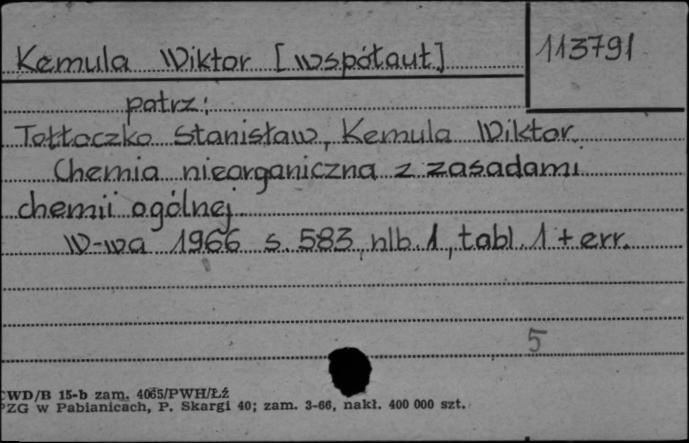 Kemula Wiktor [współaut] 113791
patrz:
Tołłoczko Stanisław, Kemula Wiktor
Chemia nieorganiczna z zasadami
chemii ogólnej
W-wa 1966 s. 583, nlb. 1, tabl. 1 + err.
5
CWD/B 15-b zam. 4065/PWH/Łź
PZG w Pabianicach, P. Skargi 40; zam. 3-66, nakł. 400 000 szt.